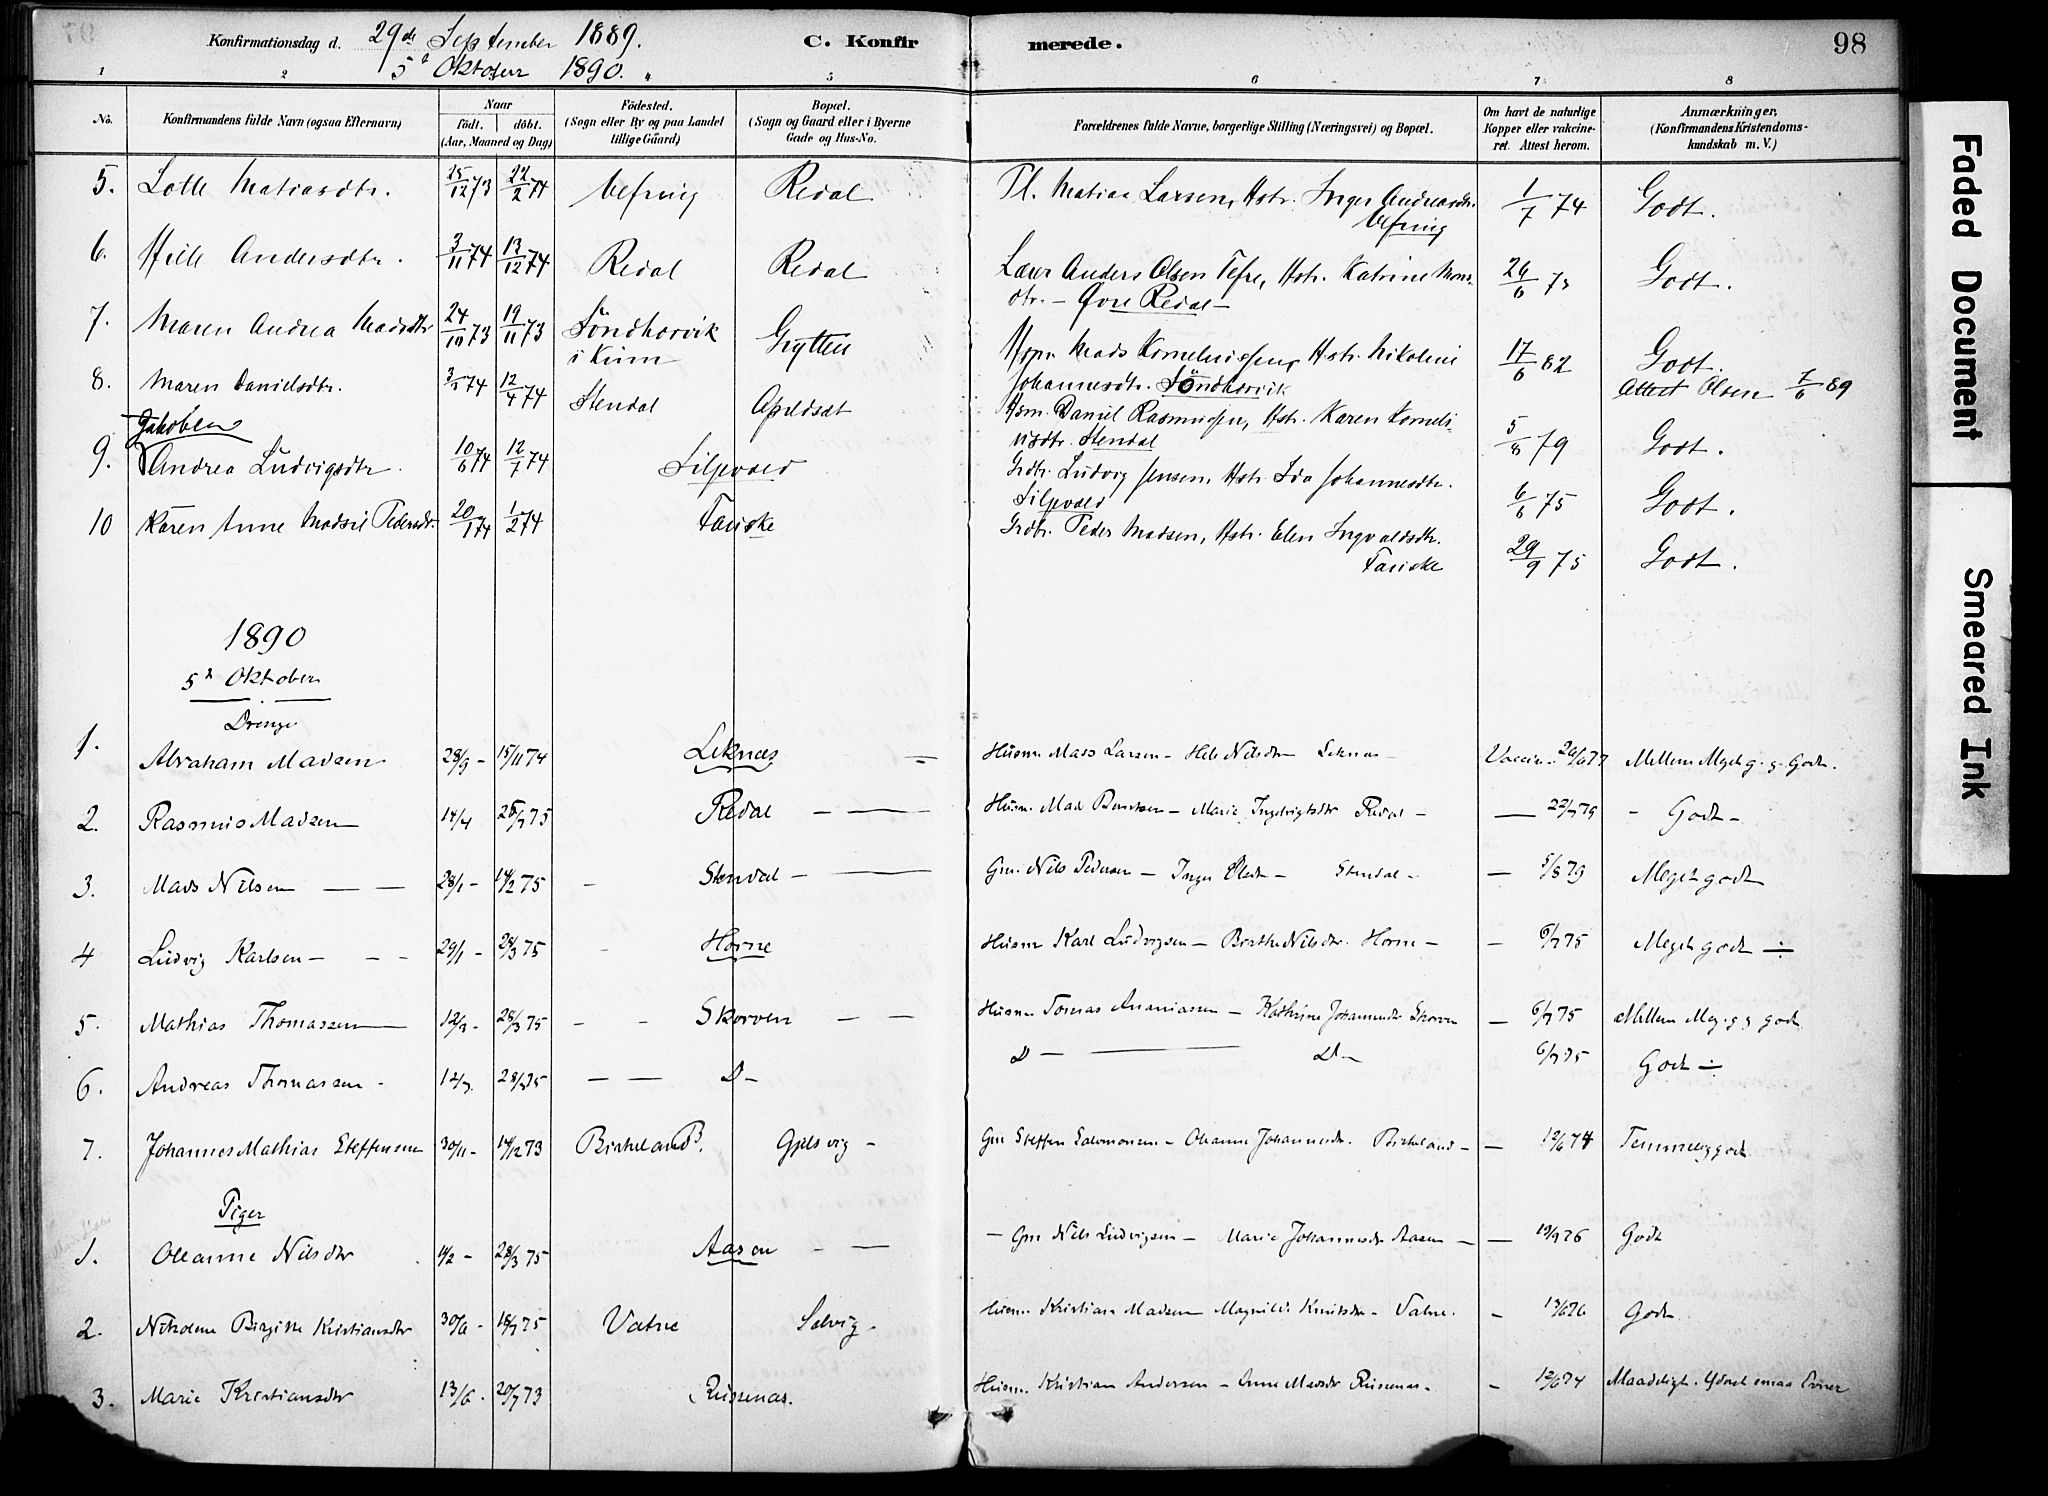 Konfirmationsdag d. 29de September 1889.
5te Oktober 1890. "
C. Konfirmerede.
98
1 2 5 6 7 8
No. Konfirmandens fulde Navn (ogsaa Efternavn) Naar födt. döbt. (Aar, Maaned og Dag) Födested. (Sogn eller By og paa Landet tillige Gaard) Bopæl. (Sogn og Gaard eller i Byerne Gade og Hus-No. Forældrenes fulde Navne, borgerlige Stilling (Næringsvei) og Bopæl. Om havt de naturlige Kopper eller vaccineret. Attest herom. Anmærkninger, (Konfirmandens Kristendomskundskab m. V.)
5. Lotte Matiasdtr. 25/12 73 22/2 74 Vefring Redal Pl. Matias Larsen, Hstr. Inger Andreasdtr. Vefring 1/7 74 Godt.
6. Andersdtr. 3/11 74 13/12 74 Redal Redal Anders Olsen Tefre, Hstr. Katrine Monsdtr. — Øvre Redal — Godt.
7. Maren Andrea Madsdtr 24/10 73 19/11 73 Söndhorvik i Kinn Grytten Mads Korneliussen, Hstr. Nikoline Johannesdtr. Söndhorvik 17/6 82 Godt. Attest Olsen 7/6 89
8. Maren Danielsdtr. 12/4 74 Stendal Apeldset Hsm. Daniel Rasmussen, Hstr. Karen Korneliusdtr. Stendal 5/8 79 Godt.
Jakobea
9. Andrea Ludvigsdtr. 10/6 74 12/7 74 Silpvold Grdbr. Ludvig Jensen, Hstr. Ida Johannesdtr. Silpvold 6/6 75 Godt.
10 Karen Anne Pedersdtr. 20/1 74 1/2 74 Fauske Grdbr. Peder Madsen, Hstr. Elen Ingvaldsdtr. Fauske 29/9 75 Godt.
1890
5te Oktober
Drenge
1. Abraham Madsen 28/9 - 15/11 74 Leknæs = Husm. Mass Larsen - Nilsdtr - Leknæs - Mellem Meget g. g. Godt.
2. Rasmus Madsen 14/4 25/7 75 Redal — — Husm. Mads Berntsen - Marie Ingebrigtsdtr Redal - — 22/7 79 - Godt -
3. Mads Nilsen — — 28/1 - 14/2 75 - Stendal - — Gm. Nils Pedersen - Inger Olsdtr - Stendal - — 5/8 79 Meget godt
4 Ludvig Karlsen - - - 29/1 - 28/3 75 - Horne Husm Karl Ludvigsen - Birthe Nilsdtr. Horne - — 6/7 75 Meget godt ÷
5. Mathias Thomassen — 12/3 - 28/3 75 - - Skorven — — Husm Tomas Ananiassen - Kathrine Johannesdtr Skorven — 6/7 75 Mellem Meg. g g godt
6. Andreas Thomassen - 12/3. 28/3 75 — — D - D — — D - 6/7 75 Godt ÷
7. Johannes Mathias Steffensen 30/11 - 14/12 73 Birkeland B. Gjelsvig - Gm Steffen Salomonsen - Oleanne Johannesdtr. Birkeland - — 12/6 74 Temmelig godt
Piger
1. Oleanne Nilsdtr 28/3 75 Aasen - — - Gm Nils Ludvigsen - Marie Johannesdtr Aasen - — 19/9 76 Godt
2. Nikoline Birgitte Kristiansdtr 30/6 - 18/7 75 Vatne Solvig. Husm. Kristian Madsen Magnilde Knutsdtr - Vatne. - 13/6 76 Godt
3. Marie Kristiansdtr 13/6 - 20/7 73 Russenæs. Husm. Kristian Andersen - Anne Madsdtr Russenæs - - 12/6 74 Maadeligt. Yderst smaa Evner
Faded Document
Smeared Ink